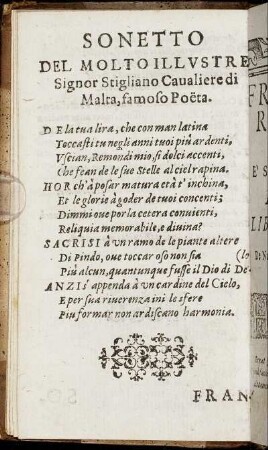 SONETTO
DEL MOLTO ILLVSTRE
Signor Stigliano Caualiere di
Malta, famoso Poëta.
DE la tua lira, che con man latina
Toccasti tu negli anni tuoi più ardenti,
Vscian, Remondi mio, sì dolci accenti,
Che fean de le sue Stelle al ciel rapina.
HOR ch'à posar matura età t'inchina,
Et le glorie à goder de tuoi concenti;
Dimmi oue por la cetera conuienti,
Reliquia memorabile, e diuina?
SACRISI à vn ramo de le piante altere
Di Pindo, oue toccar oso non sia (lo
Più alcun, quantunque fusse il Dio di De-
ANZI s'appenda à vn cardine del Cielo,
E per sua riuerenza iui le sfere
Piu formar non ardiscano harmonia.
FRAN-